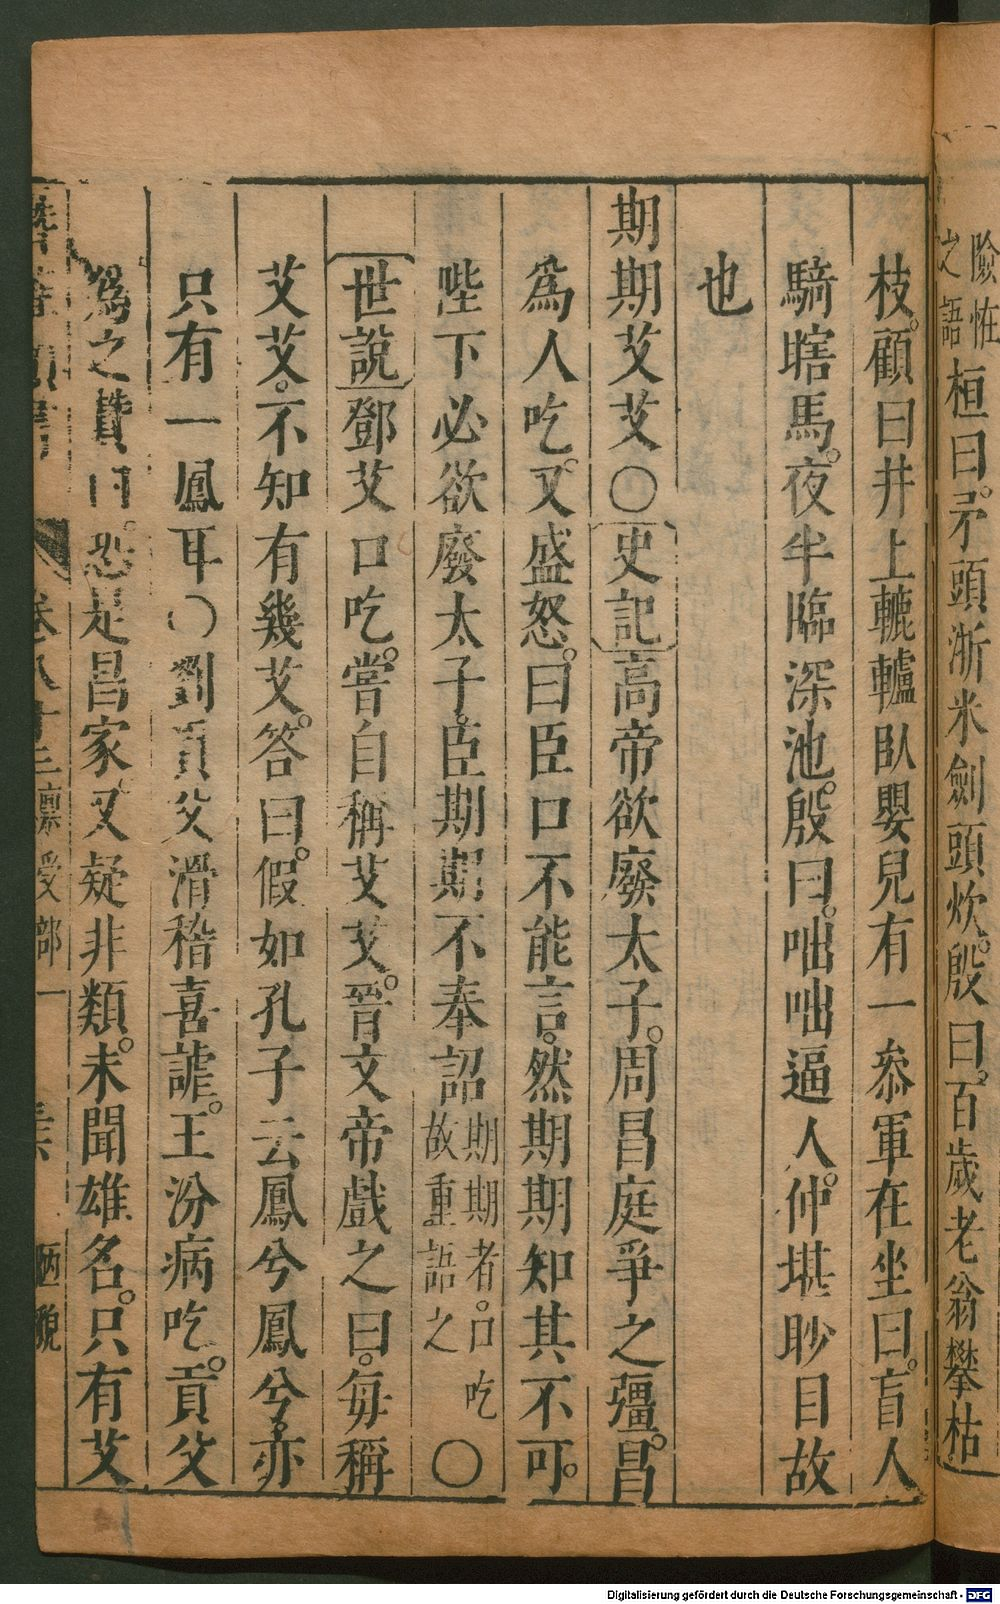 險怪
之語
桓曰矛頭淅米劍頭炊殷曰百歲老翁攀枯
枝顧曰井上轆轤臥嬰兒有一叅軍在坐曰盲人
騎瞎馬夜半臨深池殷曰咄咄逼人仲堪眇目故
也
期期艾艾〇史記高帝欲廢太子周昌庭爭之彊昌
為人吃又盛怒曰臣口不能言然期期知其不可
陛下必欲廢太子臣期期不奉詔
期期者口吃
故重語之
〇
世說鄧艾口吃嘗自稱艾艾晉文帝戲之曰每稱
艾艾不知有幾艾答曰假如孔子云鳳兮鳳兮亦
只有一鳳耳〇劉貢父滑稽喜謔王汾病吃貢父
為之贊曰恐是昌家又疑非類未聞雄名只有艾
卷八十三稟受部一 陋貌
Digitalisierung gefördert durch die Deutsche Forschungsgemeinschaft - DFG